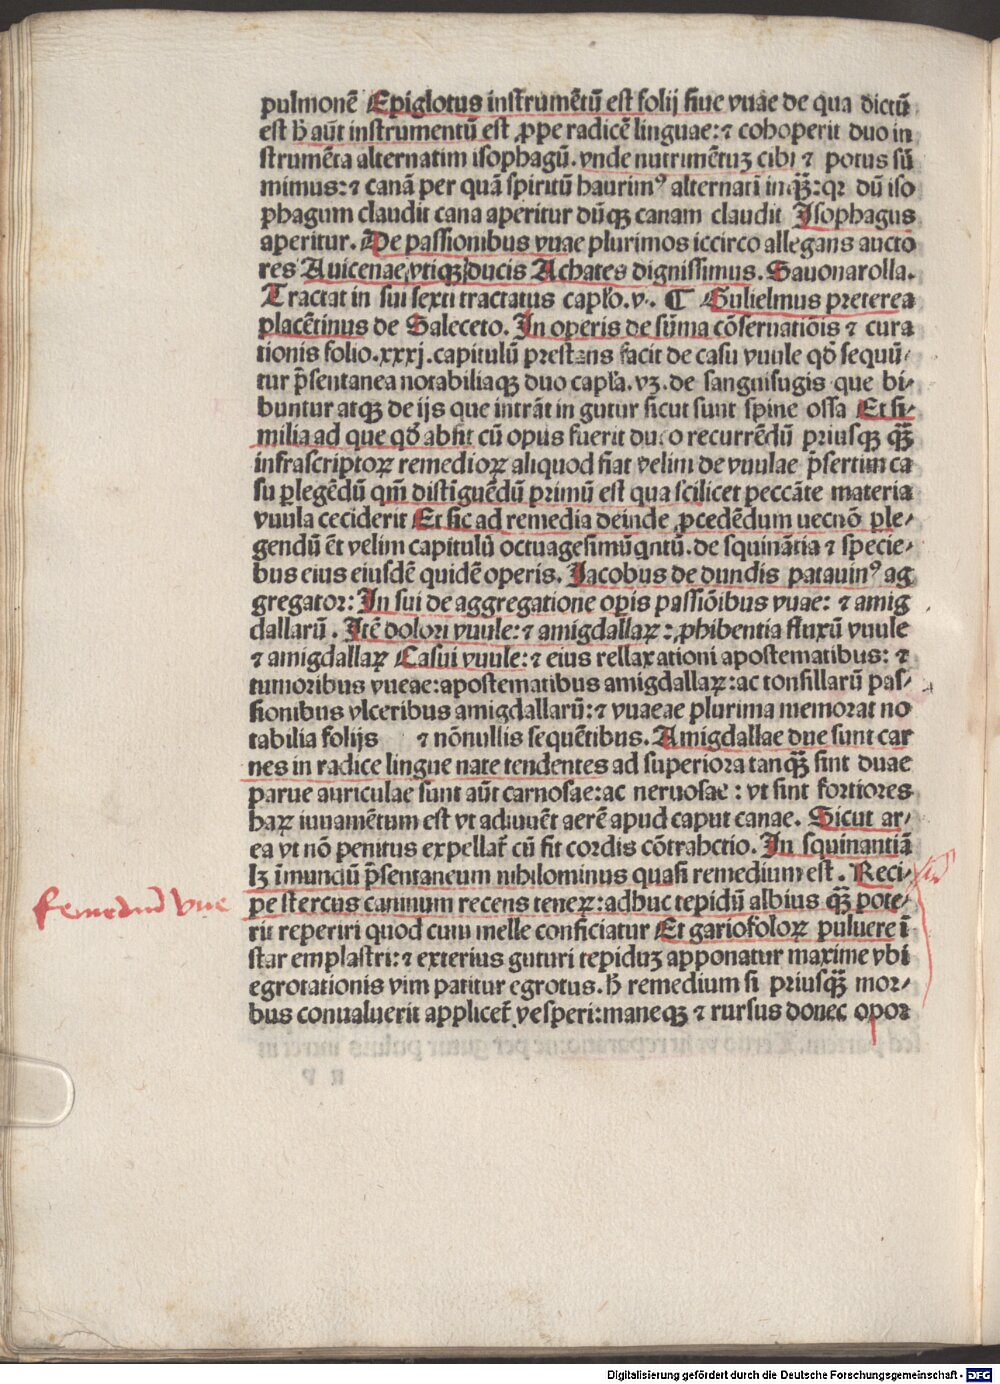 pulmonē Epiglotus instrumētū est folij siue vuae de qua dictū
est hͦ aūt instrumentū est ꝓpe radicē linguae: ⁊ cohoperit duo in
strumēta alternatim isophagū. vnde nutrimētuꝫ cibi ⁊ potus sū
mimus: ⁊ canā per quā spiritū haurimꝰ alternati inqꝫ̄: qꝛ dū iso
phagum claudit cana aperitur dūqꝫ canam claudit Isophagus
aperitur. De passionibus vuae plurimos iccirco allegans aucto
res Auicenae vtiqꝫ ducis Achates dignissimus. Sauonarolla.
Tractat in sui sexti tractatus capło. v. ¶ Gulielmus preterea
placētinus de Saleceto. In operis de sūma cōseruatiōis ⁊ cura
tionis folio. xxxj. capitulū prestans facit de casu vuule qđ sequū⸗
tur p̄sentanea notabiliaqꝫ duo capła. vꝫ. de sanguisugis que bi⸗
buntur atqꝫ de ijs que intrāt in gutur sicut sunt spine ossa Et si⸗
milia ad que qđ absit cū opus fuerit duco recurrēdū priusqꝫ qꝫ̄
infrascriptoꝝ remedioꝝ aliquod fiat velim de vuulae p̄sertim ca
su ꝑlegēdū qm̄ distīguēdū primū est qua scilicet peccāte materia
vuula ceciderit Et sic ad remedia deinde ꝓcedēdum uecnō ꝑle⸗
gendū ēt velim capitulū octuagesimūqntū. de squinātia ⁊ specie⸗
bus eius eiusdē quidē operis. Jacobus de dundis patauinꝰ ag
gregator: In sui de aggregatione opīs passiōibus vuae: ⁊ amig
dallarū. Itē dolori vuule: ⁊ amigdallaꝝ: ꝓhibentia fluxū vuule
⁊ amigdallaꝝ Casui vuule: ⁊ eius rellaxationi apostematibus: ⁊
tumoribus vueae: apostematibus amigdallaꝝ: ac tonsillarū pas⸗
sionibus vlceribus amigdallarū: ⁊ vuaeae plurima memorat no
tabilia folijs ⁊ nōnullis sequētibus. Amigdallae due sunt car
nes in radice lingue nate tendentes ad superiora tanqꝫ̄ sint duae
parue auriculae sunt aūt carnosae: ac neruosae: vt sint fortiores
haꝝ iuuamētum est vt adiuuēt aerē apud caput canae. Sicut ar⸗
ea vt nō penitus expellat̄ cū fit cordis cōtrahctio. In squinantiā
lꝫ īmunciū p̄sentaneum nihilominus quasi remedium est. Reci⸗
pe stercus caninum recens teneꝝ: adhuc tepidū albius qꝫ̄ pote⸗
rit reperiri quod cum melle conficiatur Et gariofoloꝝ puluere ī
star emplastri: ⁊ exterius guturi tepiduꝫ apponatur maxime vbi
egrotationis vim patitur egrotus. hͦ remedium si priusqꝫ̄ mor⸗
bus conualuerit applicet̄ vesperi: maneqꝫ ⁊ rursus donec opor
remediū vue
Digitalisierung gefördert durch die Deutsche Forschungsgemeinschaft - DFG